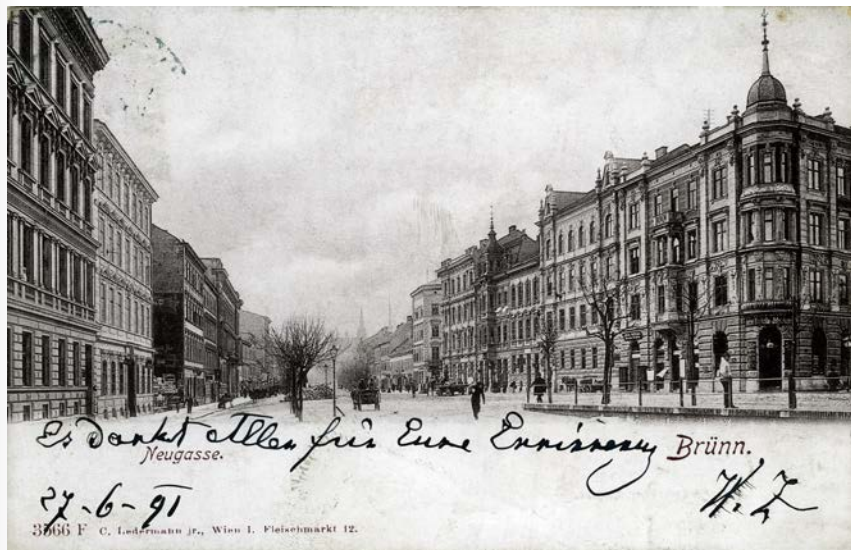 Es dankt Allen für Eure Errinnerung
Neugasse.
Brünn.
27-6-91
W. Z
3566 F C. Ledermann jr., Wien I. Fleischmarkt 12.